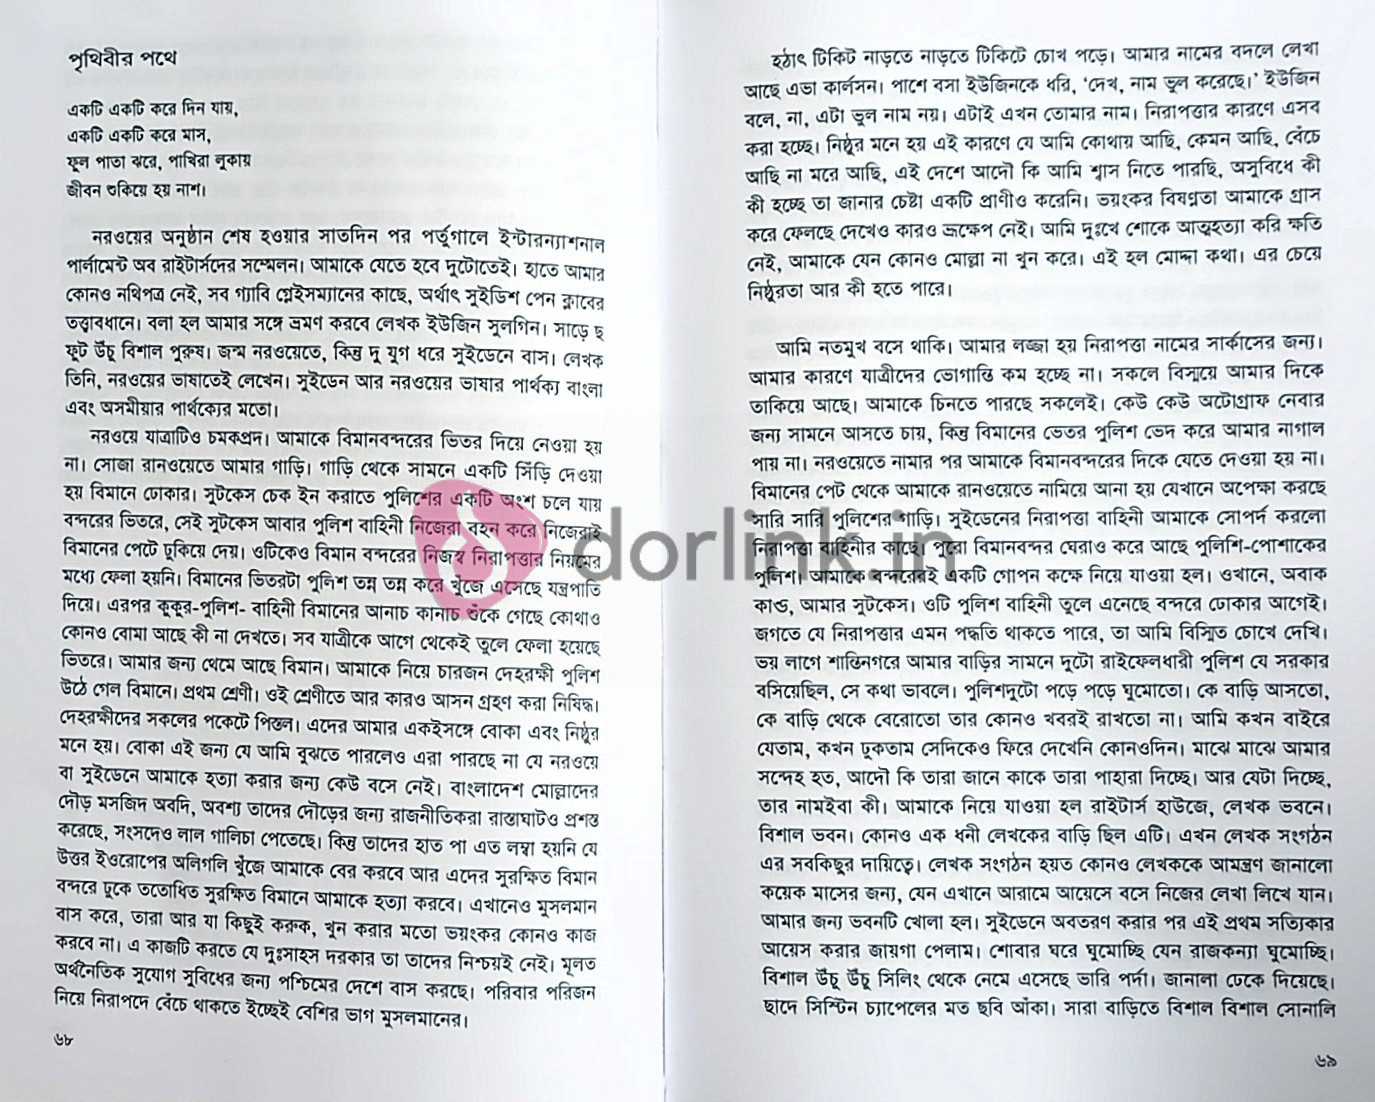 পৃথিবীর পথে
একটি একটি করে দিন যায়,
একটি একটি করে মাস,
ফুল পাতা ঝরে, পাখিরা লুকায়
জীবন শুকিয়ে হয় নাশ।
নরওয়ের অনুষ্ঠান শেষ হওয়ার সাতদিন পর পর্তুগালে ইন্টারন্যাশনাল
পার্লামেন্ট অব রাইটার্সদের সম্মেলন। আমাকে যেতে হবে দুটোতেই। হাতে আমার
কোনও নথিপত্র নেই, সব গ্যাবি গ্লেইসম্যানের কাছে, অর্থাৎ সুইডিশ পেন ক্লাবের
তত্ত্বাবধানে। বলা হল আমার সঙ্গে ভ্রমণ করবে লেখক ইউজিন সুলগিন। সাড়ে ছ
ফুট উঁচু বিশাল পুরুষ। জন্ম নরওয়েতে, কিন্তু দু যুগ ধরে সুইডেনে বাস। লেখক
তিনি, নরওয়ের ভাষাতেই লেখেন। সুইডেন আর নরওয়ের ভাষার পার্থক্য বাংলা
এবং অসমীয়ার পার্থক্যের মতো।
নরওয়ে যাত্রাটিও চমকপ্রদ। আমাকে বিমানবন্দরের ভিতর দিয়ে নেওয়া হয়
না। সোজা রানওয়েতে আমার গাড়ি। গাড়ি থেকে সামনে একটি সিঁড়ি দেওয়া
হয় বিমানে ঢোকার। সুটকেস চেক ইন করাতে পুলিশের একটি অংশ চলে যায়
বন্দরের ভিতরে, সেই সুটকেস আবার পুলিশ বাহিনী নিজেরা বহন করে নিজেরাই
বিমানের পেটে ঢুকিয়ে দেয়। ওটিকেও বিমান বন্দরের নিজস্ব নিরাপত্তার নিয়মের
মধ্যে ফেলা হয়নি। বিমানের ভিতরটা পুলিশ তন্ন তন্ন করে খুঁজে এসেছে যন্ত্রপাতি
দিয়ে। এরপর কুকুর-পুলিশ- বাহিনী বিমানের আনাচ কানাচ শুঁকে গেছে কোথাও
কোনও বোমা আছে কী না দেখতে। সব যাত্রীকে আগে থেকেই তুলে ফেলা হয়েছে
ভিতরে। আমার জন্য থেমে আছে বিমান। আমাকে নিয়ে চারজন দেহরক্ষী পুলিশ
উঠে গেল বিমানে। প্রথম শ্রেণী। ওই শ্রেণীতে আর কারও আসন গ্রহণ করা নিষিদ্ধ।
দেহরক্ষীদের সকলের পকেটে পিস্তল। এদের আমার একইসঙ্গে বোকা এবং নিষ্ঠুর
মনে হয়। বোকা এই জন্য যে আমি বুঝতে পারলেও এরা পারছে না যে নরওয়ে
বা সুইডেনে আমাকে হত্যা করার জন্য কেউ বসে নেই। বাংলাদেশ মোল্লাদের
দৌড় মসজিদ অবদি, অবশ্য তাদের দৌড়ের জন্য রাজনীতিকরা রাস্তাঘাটও প্রশস্ত
করেছে, সংসদেও লাল গালিচা পেতেছে। কিন্তু তাদের হাত পা এত লম্বা হয়নি যে
উত্তর ইওরোপের অলিগলি খুঁজে আমাকে বের করবে আর এদের সুরক্ষিত বিমান
বন্দরে ঢুকে ততোধিত সুরক্ষিত বিমানে আমাকে হত্যা করবে। এখানেও মুসলমান
বাস করে, তারা আর যা কিছুই করুক, খুন করার মতো ভয়ংকর কোনও কাজ
করবে না। এ কাজটি করতে যে দুঃসাহস দরকার তা তাদের নিশ্চয়ই নেই। মূলত
অর্থনৈতিক সুযোগ সুবিধের জন্য পশ্চিমের দেশে বাস করছে। পরিবার পরিজন
নিয়ে নিরাপদে বেঁচে থাকতে ইচ্ছেই বেশির ভাগ মুসলমানের।
৬৮
হঠাৎ টিকিট নাড়তে নাড়তে টিকিটে চোখ পড়ে। আমার নামের বদলে লেখা
আছে এভা কার্লসন। পাশে বসা ইউজিনকে ধরি, ‘দেখ, নাম ভুল করেছে।’ ইউজিন
বলে, না, এটা ভুল নাম নয়। এটাই এখন তোমার নাম। নিরাপত্তার কারণে এসব
করা হচ্ছে। নিষ্ঠুর মনে হয় এই কারণে যে আমি কোথায় আছি, কেমন আছি, বেঁচে
আছি না মরে আছি, এই দেশে আদৌ কি আমি শ্বাস নিতে পারছি, অসুবিধে কী
কী হচ্ছে তা জানার চেষ্টা একটি প্রাণীও করেনি। ভয়ংকর বিষণ্ণতা আমাকে গ্রাস
করে ফেলছে দেখেও কারও ভ্রূক্ষেপ নেই। আমি দুঃখে শোকে আত্মহত্যা করি ক্ষতি
নেই, আমাকে যেন কোনও মোল্লা না খুন করে। এই হল মোদ্দা কথা। এর চেয়ে
নিষ্ঠুরতা আর কী হতে পারে।
আমি নতমুখ বসে থাকি। আমার লজ্জা হয় নিরাপত্তা নামের সার্কাসের জন্য।
আমার কারণে যাত্রীদের ভোগান্তি কম হচ্ছে না। সকলে বিস্ময়ে আমার দিকে
তাকিয়ে আছে। আমাকে চিনতে পারছে সকলেই। কেউ কেউ অটোগ্রাফ নেবার
জন্য সামনে আসতে চায়, কিন্তু বিমানের ভেতর পুলিশ ভেদ করে আমার নাগাল
পায় না। নরওয়েতে নামার পর আমাকে বিমানবন্দরের দিকে যেতে দেওয়া হয় না।
বিমানের পেট থেকে আমাকে রানওয়েতে নামিয়ে আনা হয় যেখানে অপেক্ষা করছে
সারি সারি পুলিশের গাড়ি। সুইডেনের নিরাপত্তা বাহিনী আমাকে সোপর্দ করলো
নিরাপত্তা বাহিনীর কাছে। পুরো বিমানবন্দর ঘেরাও করে আছে পুলিশি-পোশাকের
পুলিশ। আমাকে বন্দরেরই একটি গোপন কক্ষে নিয়ে যাওয়া হল। ওখানে, অবাক
কাণ্ড, আমার সুটকেস। ওটি পুলিশ বাহিনী তুলে এনেছে বন্দরে ঢোকার আগেই।
জগতে যে নিরাপত্তার এমন পদ্ধতি থাকতে পারে, তা আমি বিস্মিত চোখে দেখি।
ভয় লাগে শান্তিনগরে আমার বাড়ির সামনে দুটো রাইফেলধারী পুলিশ যে সরকার
বসিয়েছিল, সে কথা ভাবলে। পুলিশদুটো পড়ে পড়ে ঘুমোতো। কে বাড়ি আসতো,
কে বাড়ি থেকে বেরোতো তার কোনও খবরই রাখতো না। আমি কখন বাইরে
যেতাম, কখন ঢুকতাম সেদিকেও ফিরে দেখেনি কোনওদিন। মাঝে মাঝে আমার
সন্দেহ হত, আদৌ কি তারা জানে কাকে তারা পাহারা দিচ্ছে। আর যেটা দিচ্ছে,
তার নামইবা কী। আমাকে নিয়ে যাওয়া হল রাইটার্স হাউজে, লেখক ভবনে।
বিশাল ভবন। কোনও এক ধনী লেখকের বাড়ি ছিল এটি। এখন লেখক সংগঠন
এর সবকিছুর দায়িত্বে। লেখক সংগঠন হয়ত কোনও লেখককে আমন্ত্রণ জানালো
কয়েক মাসের জন্য, যেন এখানে আরামে আয়েসে বসে নিজের লেখা লিখে যান।
আমার জন্য ভবনটি খোলা হল। সুইডেনে অবতরণ করার পর এই প্রথম সত্যিকার
আয়েস করার জায়গা পেলাম। শোবার ঘরে ঘুমোচ্ছি যেন রাজকন্যা ঘুমোচ্ছি।
বিশাল উঁচু উঁচু সিলিং থেকে নেমে এসেছে ভারি পর্দা। জানালা ঢেকে দিয়েছে।
ছাদে সিস্টিন চ্যাপেলের মত ছবি আঁকা। সারা বাড়িতে বিশাল বিশাল সোনালি
৬৯
dorlink.in